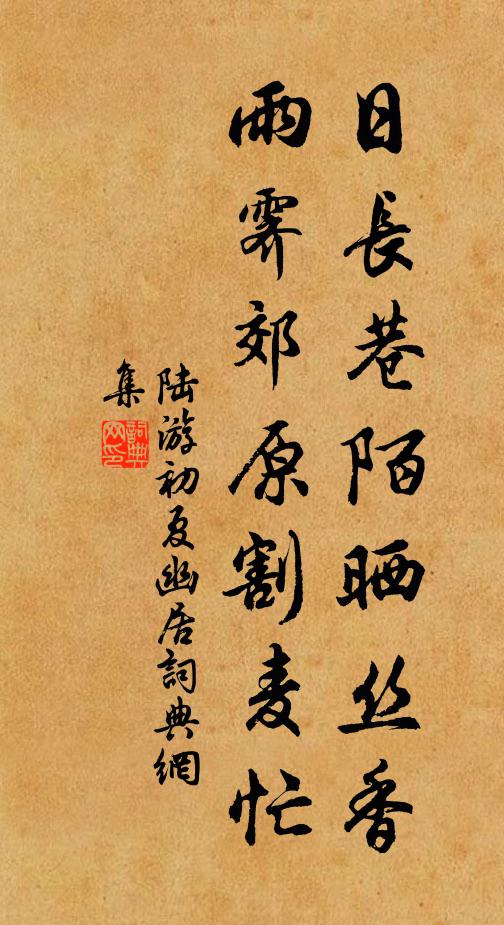 日長巷陌晒丝香
雨霁郊原割麦忙
陆游初夏幽居詞典網
集
詞典
网印